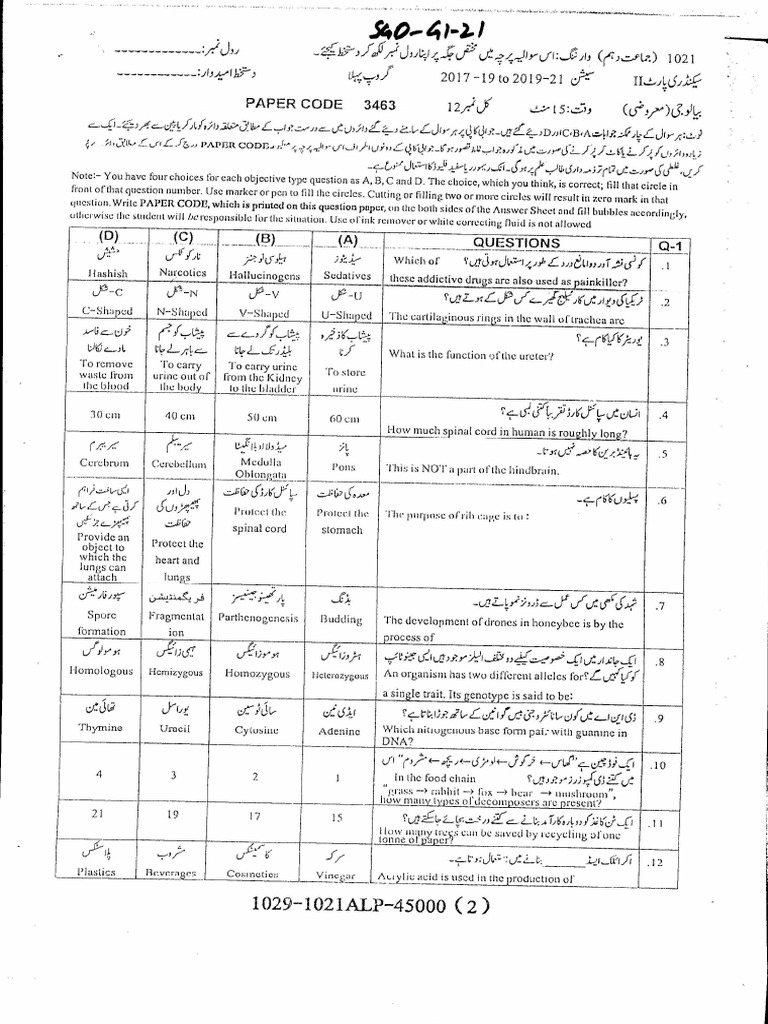 SGD-G1-21
1021 (جماعت دہم) وارننگ: اس سوالیہ پرچہ میں مختص جگہ پر اپنا رول نمبر لکھ کر دستخط کیجئے۔ رول نمبر: -------------
سیکنڈری پارٹ II سیشن 2017 -19 to 2019-21 گروپ پہلا دستخط امیدوار: ------------
بیالوجی (معروضی) وقت: 15 منٹ کل نمبر 12 PAPER CODE 3463
نوٹ: ہر سوال کے چار ممکنہ جوابات C، B، A اور D دیئے گئے ہیں۔ جوابی کاپی پر ہر سوال کے سامنے دیئے گئے دائروں میں سے درست جواب کے مطابق متعلقہ دائرہ کو مارکر یا پین سے بھر دیجئے۔ ایک سے
زیادہ دائروں کو پُر کرنے یا کاٹ کر پُر کرنے کی صورت میں مذکورہ جواب غلط تصور ہوگا۔ جوابی کاپی کے دونوں اطراف اس سوالیہ پرچہ پر PAPER CODE درج کر کے اس کے مطابق دائرے پر
کریں، غلطی کی صورت میں تمام تر ذمہ داری طالب علم پر ہوگی۔ انک ریموور یا سفید فلیوڈ کا استعمال ممنوع ہے۔
Note:- You have four choices for each objective type question as A, B, C and D. The choice, which you think, is correct; fill that circle in
front of that question number. Use marker or pen to fill the circles. Cutting or filling two or more circles will result in zero mark in that
question. Write PAPER CODE, which is printed on this question paper, on the both sides of the Answer Sheet and fill bubbles accordingly,
otherwise the student will be responsible for the situation. Use of ink remover or white correcting fluid is not allowed
(D) (C) (B) (A) QUESTIONS Q-1
حشیش نارکوٹکس ہیلوسی نوجنز سیڈیٹوز کونسی نشہ آور دوا مانع درد کے طور پر استعمال ہوتی ہیں؟ Which of .1
Hashish Narcotics Hallucinogens Sedatives these addictive drugs are also used as painkiller?
C-شکل N-شکل V-شکل U-شکل ٹریکیا کی دیوار میں کارٹیلیج گھیرے کس شکل کے ہوتے ہیں؟ .2
C-Shaped N-Shaped V-Shaped U-Shaped The cartilaginous rings in the wall of trachea are
خون سے فاسد مادے نکالنا پیشاب کو جسم سے باہر لے جانا پیشاب کو گردے سے بلیڈر تک لے جانا پیشاب کا ذخیرہ کرنا یوریٹر کا کیا کام ہے؟ .3
To remove waste from the blood To carry urine out of the body To carry urine from the Kidney to the bladder To store urine What is the function of the ureter?
انسان میں سپائنل کارڈ تقریباً کتنی لمبی ہے؟ .4
30 cm 40 cm 50 cm 60 cm How much spinal cord in human is roughly long?
سیریبرم سیریبیلم میڈولا اوبلانگیٹا پانز یہ ہائینڈ برین کا حصہ نہیں ہوتا۔ .5
Cerebrum Cerebellum Medulla Oblongata Pons This is NOT a part of the hindbrain.
ایسی ساخت فراہم کرتی ہے جس کے ساتھ پھیپھڑے جڑ سکیں دل اور پھیپھڑوں کی حفاظت سپائنل کارڈ کی حفاظت معدہ کی حفاظت پسلیوں کا کام ہے۔ .6
Provide an object to which the lungs can attach Protect the heart and lungs Protect the spinal cord Protect the stomach The purpose of rib cage is to :
سپور فارمیشن فریگمنٹیشن پارتھینو جینیسز بڈنگ شہد کی مکھی میں کس عمل سے ڈرونز نمو پاتے ہیں۔ .7
Spore formation Fragmentat ion Parthenogenesis Budding The development of drones in honeybee is by the process of
ہومولوگس ہیمی زائیگس ہوموزائیگس ہٹروزائیگس ایک جاندار میں ایک خصوصیت کیلئے دو مختلف الیلز موجود ہیں ایسی جینو ٹائپ کو کیا کہیں گے؟ .8
Homologous Hemizygous Homozygous Heterozygous An organism has two different alleles for a single trait. Its genotype is said to be:
تھائی مین یوراسل سائی ٹوسین ایڈی نین ڈی این اے میں کون سا نائٹروجنی بیس گوانین کے ساتھ جوڑا بناتا ہے؟ .9
Thymine Uracil Cytosine Adenine Which nitrogenous base form pair with guanine in DNA?
ایک فوڈ چین ہے "گھاس → خرگوش → لومڑی → ریچھ → مشروم" اس میں کتنے ڈی کمپوزرز موجود ہیں؟ .10
4 3 2 1 In the food chain "grass → rabbit → fox → bear → mushroom", how many types of decomposers are present?
ایک ٹن کاغذ کو دوبارہ کارآمد بنانے سے کتنے درخت بچائے جاسکتے ہیں؟ .11
21 19 17 15 How many trees can be saved by recycling of one tonne of paper?
پلاسٹکس مشروب کاسمیٹکس سرکہ اکرائلک ایسڈ ______ بنانے میں استعمال ہوتا ہے۔ .12
Plastics Beverages Cosmetics Vinegar Acrylic acid is used in the production of
1029-1021ALP-45000 (2)